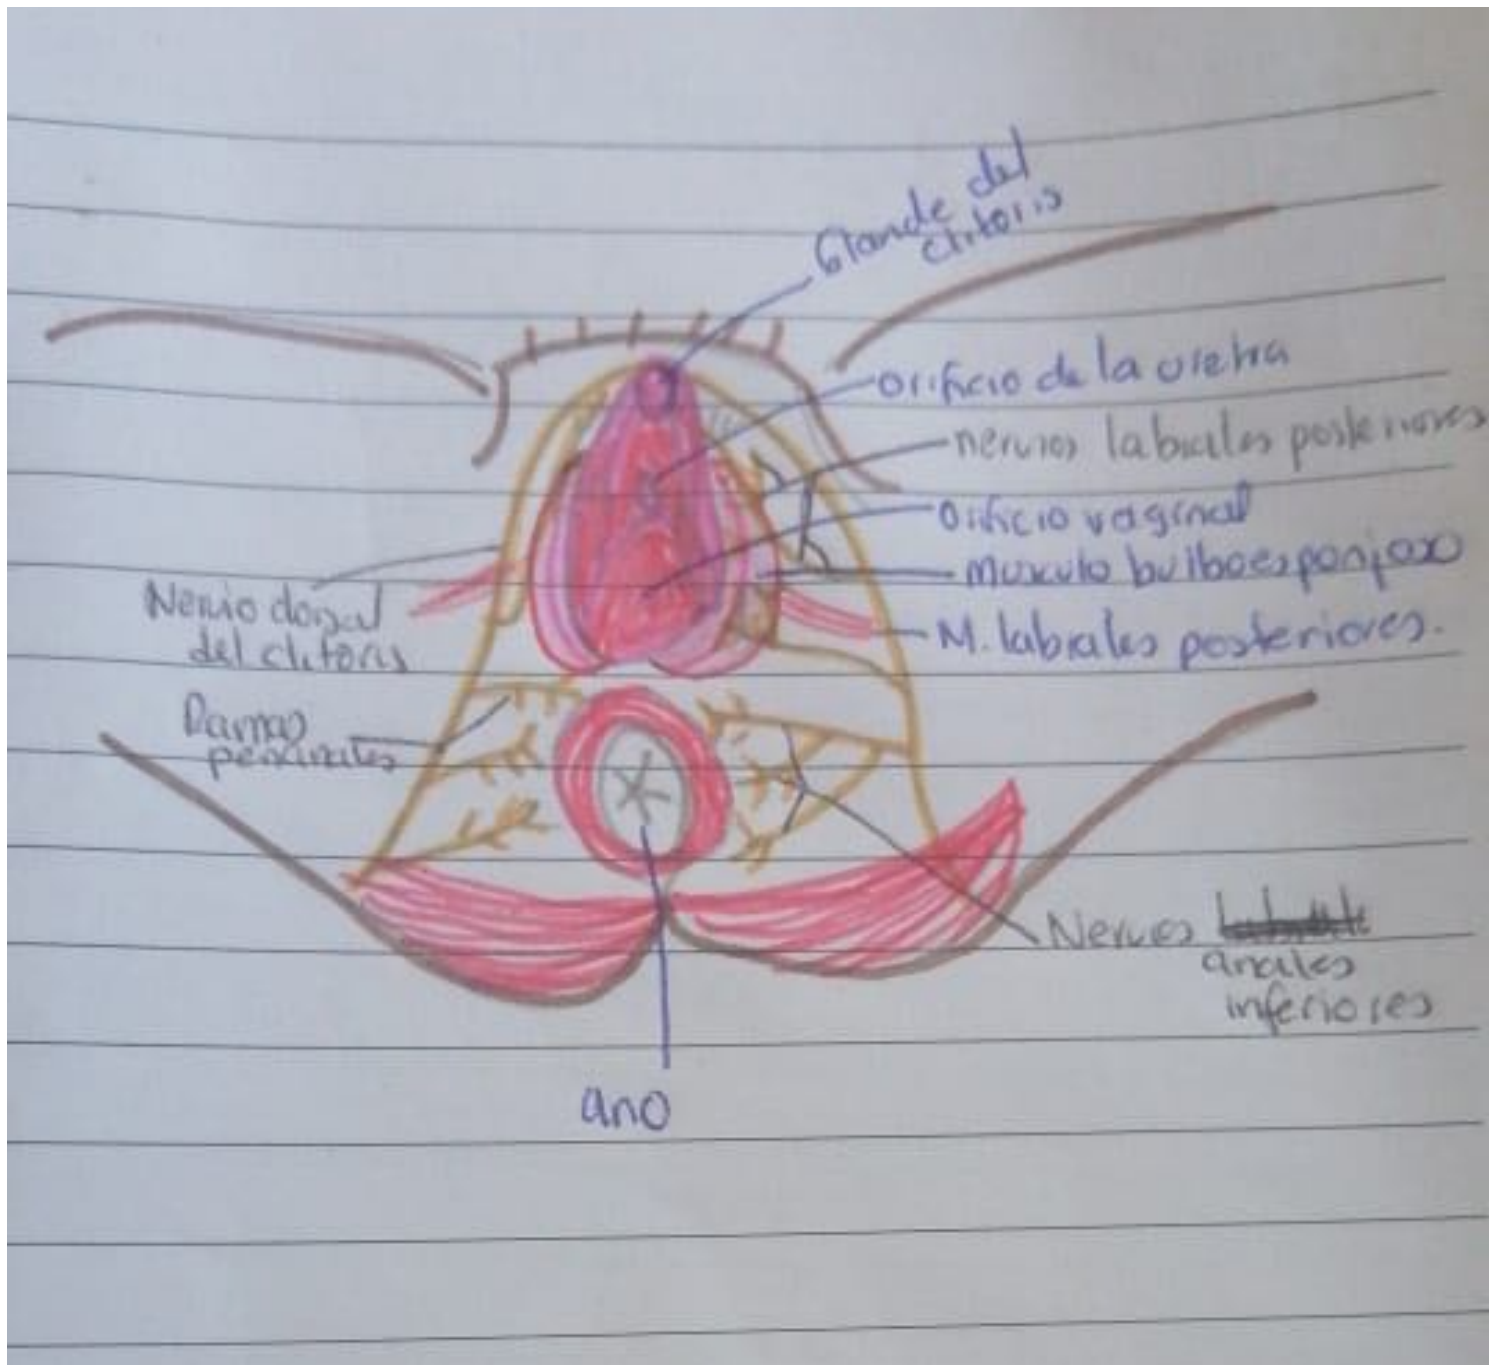 Glande del
clitoris
orificio de la uretra
nervios labiales posteriores
Orificio vaginal
musculo bulboesponjoso
M. labiales posteriores.
Nervio dorsal
del clitoris
Ramas
perineales
Nervios
anales
inferiores
ano